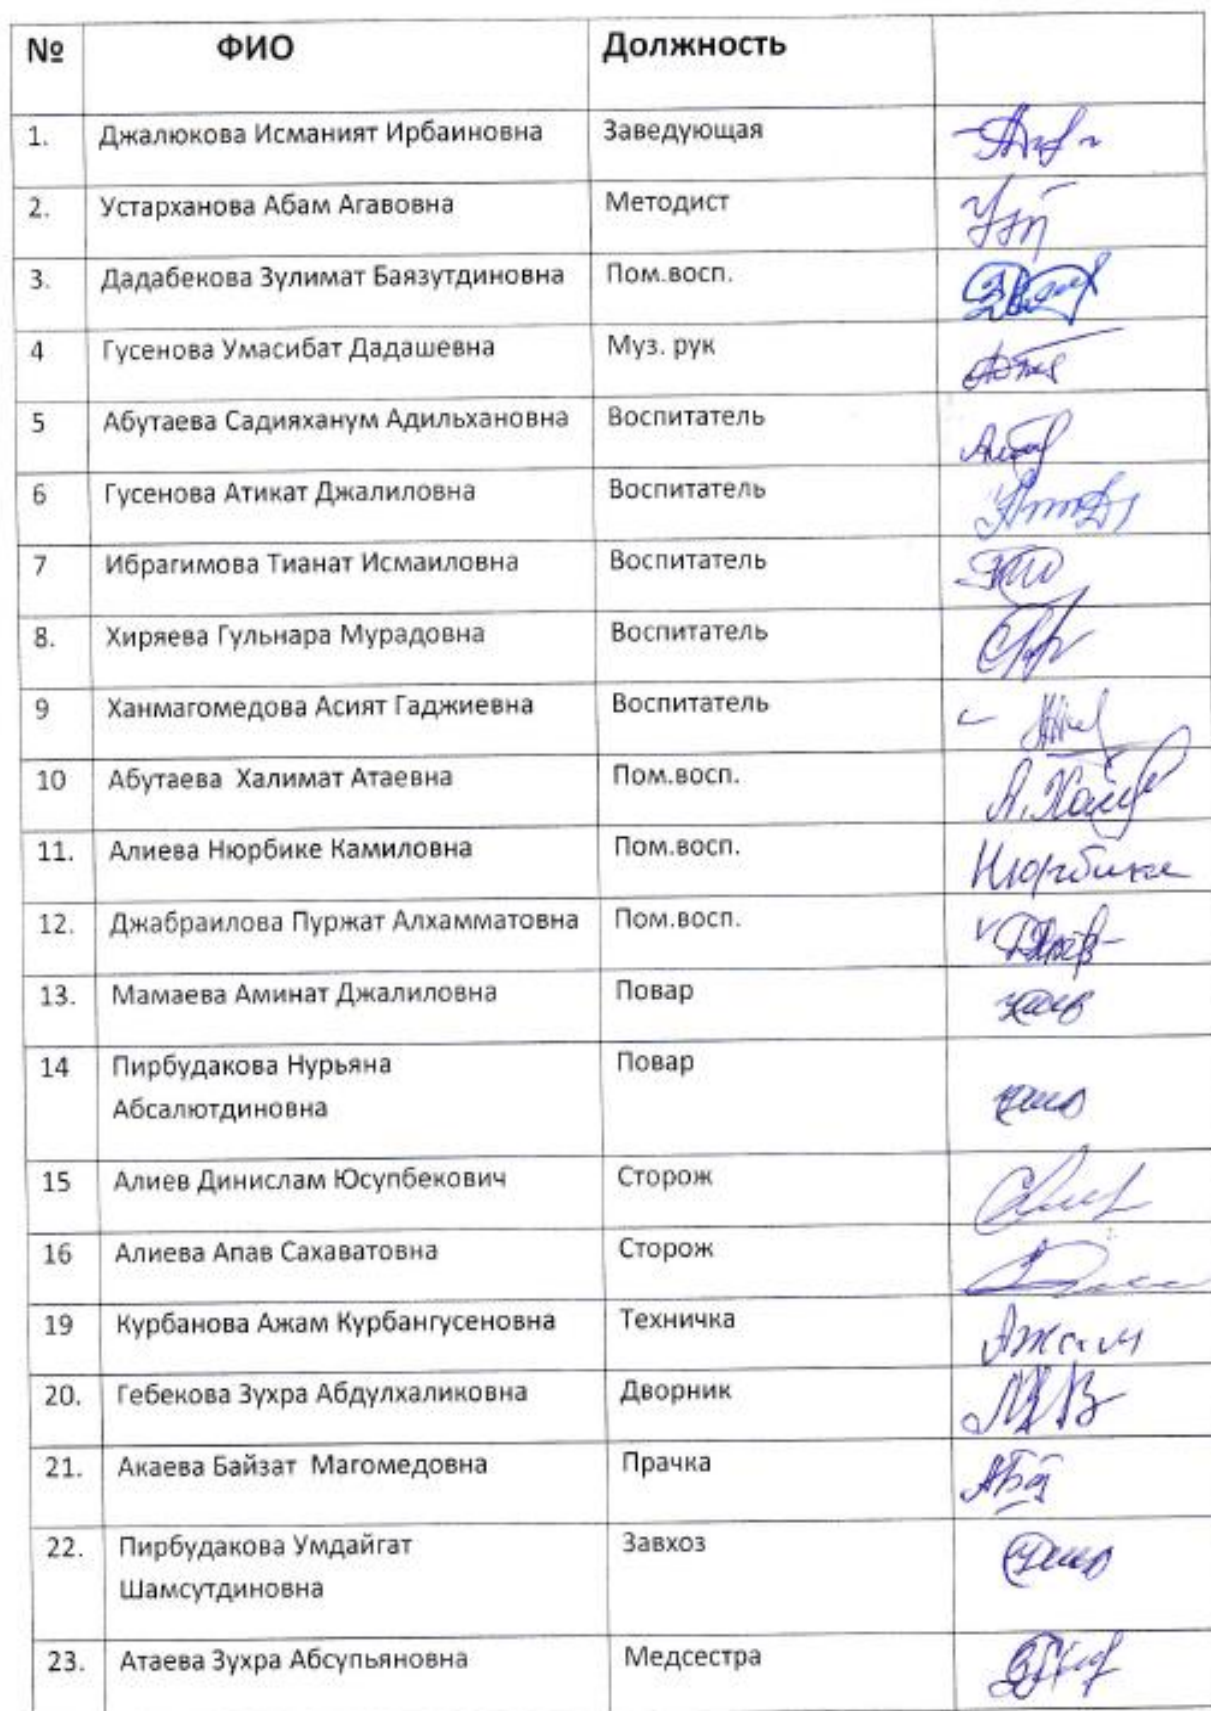 № ФИО Должность
1. Джалюкова Исманият Ирбаиновна Заведующая
2. Устарханова Абам Агавовна Методист
3. Дадабекова Зулимат Баязутдиновна Пом.восп.
4 Гусенова Умасибат Дадашевна Муз. рук
5 Абутаева Садияханум Адильхановна Воспитатель
6 Гусенова Атикат Джалиловна Воспитатель
7 Ибрагимова Тианат Исмаиловна Воспитатель
8. Хиряева Гульнара Мурадовна Воспитатель
9 Ханмагомедова Асият Гаджиевна Воспитатель
10 Абутаева Халимат Атаевна Пом.восп.
11. Алиева Нюрбике Камиловна Пом.восп. Нюрбике
12. Джабраилова Пуржат Алхамматовна Пом.восп.
13. Мамаева Аминат Джалиловна Повар
14 Пирбудакова Нурьяна Повар
Абсалютдиновна
15 Алиев Динислам Юсупбекович Сторож
16 Алиева Апав Сахаватовна Сторож
19 Курбанова Ажам Курбангусеновна Техничка Ажам
20. Гебекова Зухра Абдулхаликовна Дворник
21. Акаева Байзат Магомедовна Прачка
22. Пирбудакова Умдайгат Завхоз
Шамсутдиновна
23. Атаева Зухра Абсупьяновна Медсестра